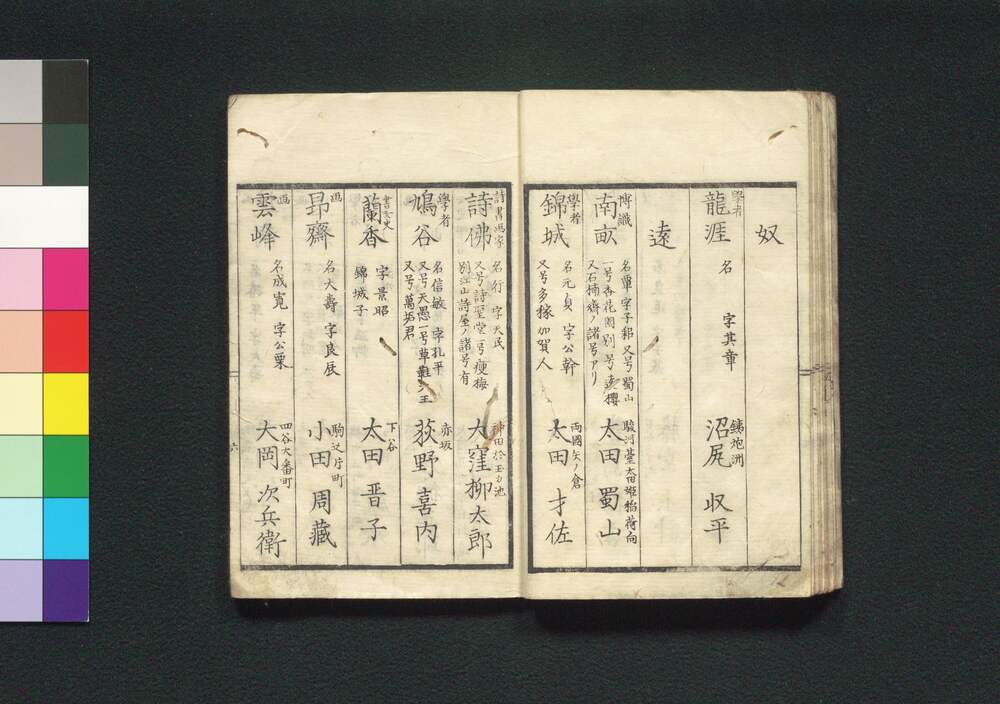 奴
學者
龍涯 名 字其章
鐵炮洲
沼尻 収平
遠
博識
南畝 名覃 字子耜 又号蜀山
一号杏花園 別号
又石楠齋ノ諸号アリ
駿河臺太田姫稲荷向
太田 蜀山
學者
錦城 名元貞 字公幹
又号多稼 加賀人
両國矢ノ倉
太田 才佐
詩書画家
詩佛 名行 字天民
又号詩聖堂 一号痩梅
別江山詩屋ノ諸号有
神田於玉ヵ池
大窪柳太郎
學者
鳩谷 名信敏 字孔平
又号天愚 一号草鞋ノ王
又号萬垢君
赤坂
荻野喜内
書女史
蘭香 字景昭
錦城子
下谷
太田 晋子
画
昂齋 名大壽 字良辰
駒込片町
小田 周藏
画
雲峰 名成寛 字公栗
四谷大番町
大岡 次兵衛
六